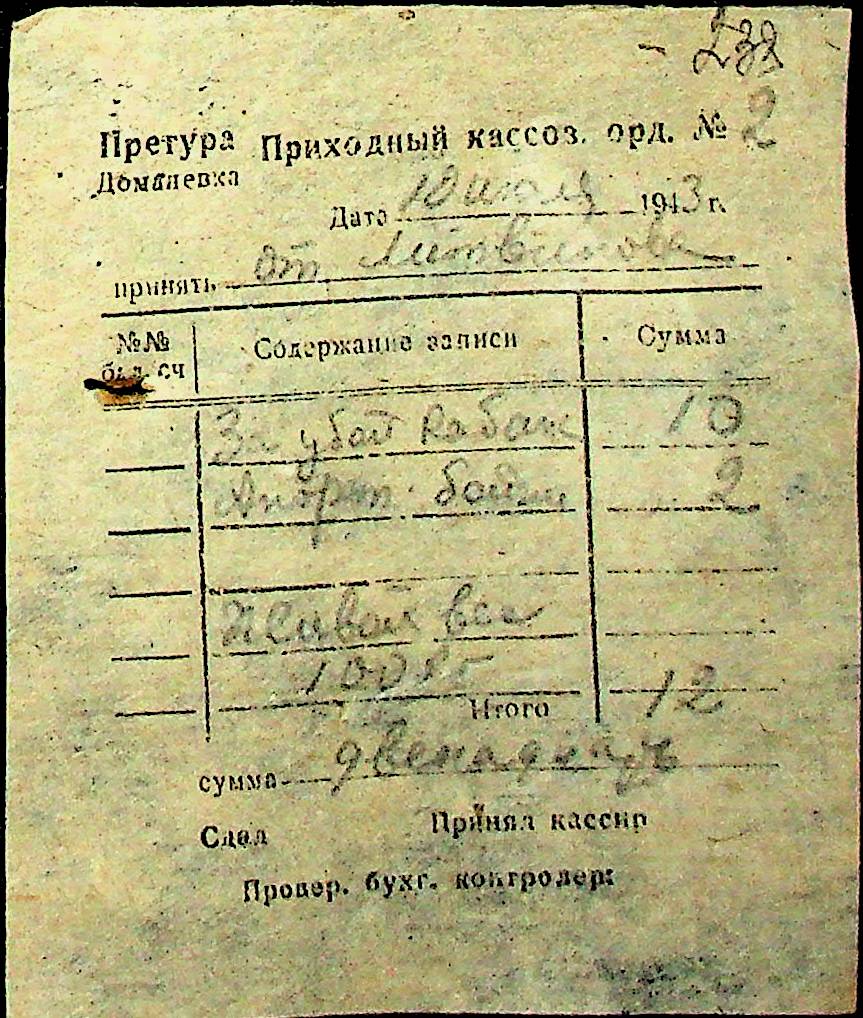 - 232
Претура Приходный кассов. орд. № 2
Доманевка
Дата 10 июля 1943 г.
принять от Литвинова
№№ Содержание записи Сумма
бал. сч
За убой кабан 10
2
Живой вес
100 кг
Итого 12
сумма двенадцать
Сдал Принял кассир
Провер. бухг. контролер: